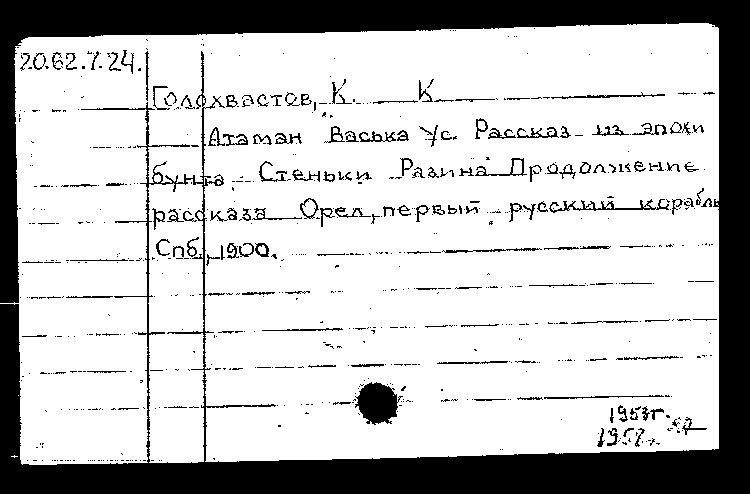 20.62.7.24.
Голохвастов, К. К
Атаман Васька Ус. Рассказ из эпохи
бунта Стеньки Разина Продолжение
рассказа Орел, первый русский корабль
Спб., 1900.
1953г.
195